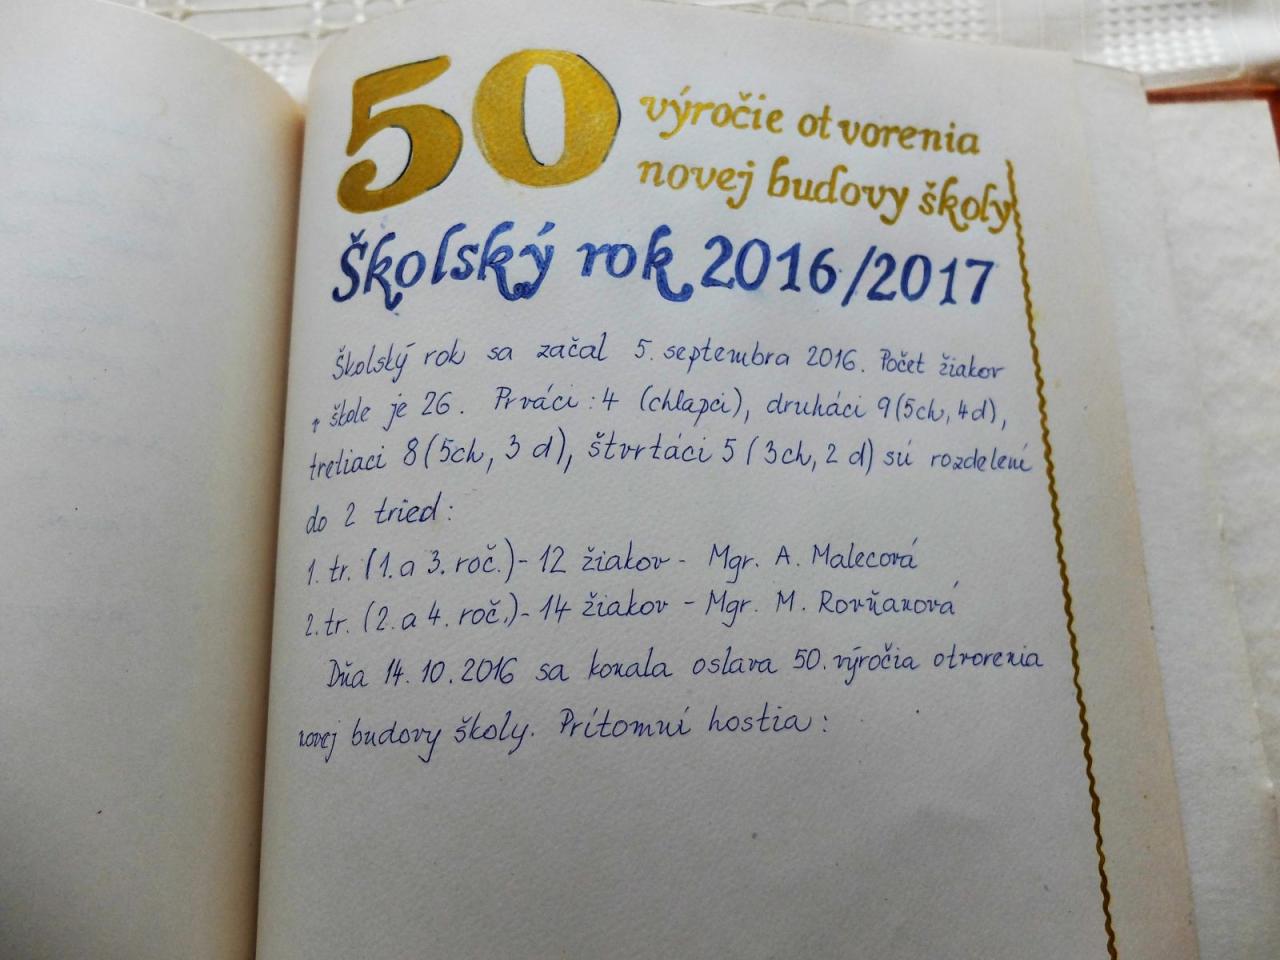 50 výročie otvorenia
novej budovy školy
Školský rok 2016/2017
Školský rok sa začal 5. septembra 2016. Počet žiakov
v škole je 26. Prváci: 4 (chlapci), druháci 9 (5ch, 4d),
tretiaci 8 (5ch, 3 d), štvrtáci 5 (3ch, 2 d) sú rozdelení
do 2 tried:
1. tr. (1. a 3. roč.) - 12 žiakov - Mgr. A. Malecová
2. tr. (2. a 4. roč.) - 14 žiakov - Mgr. M. Rovňanová
Dňa 14. 10. 2016 sa konala oslava 50. výročia otvorenia
novej budovy školy. Prítomní hostia: